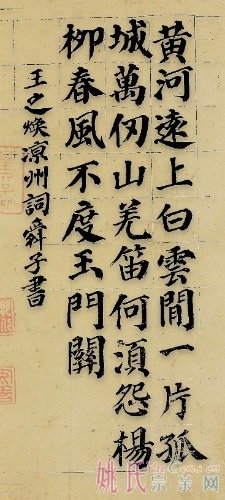 黄河遠上白雲間一片孤
城萬仞山羌笛何須怨楊
柳春風不度玉門關
王之煥凉州詞舜子書
姚氏宗亲网